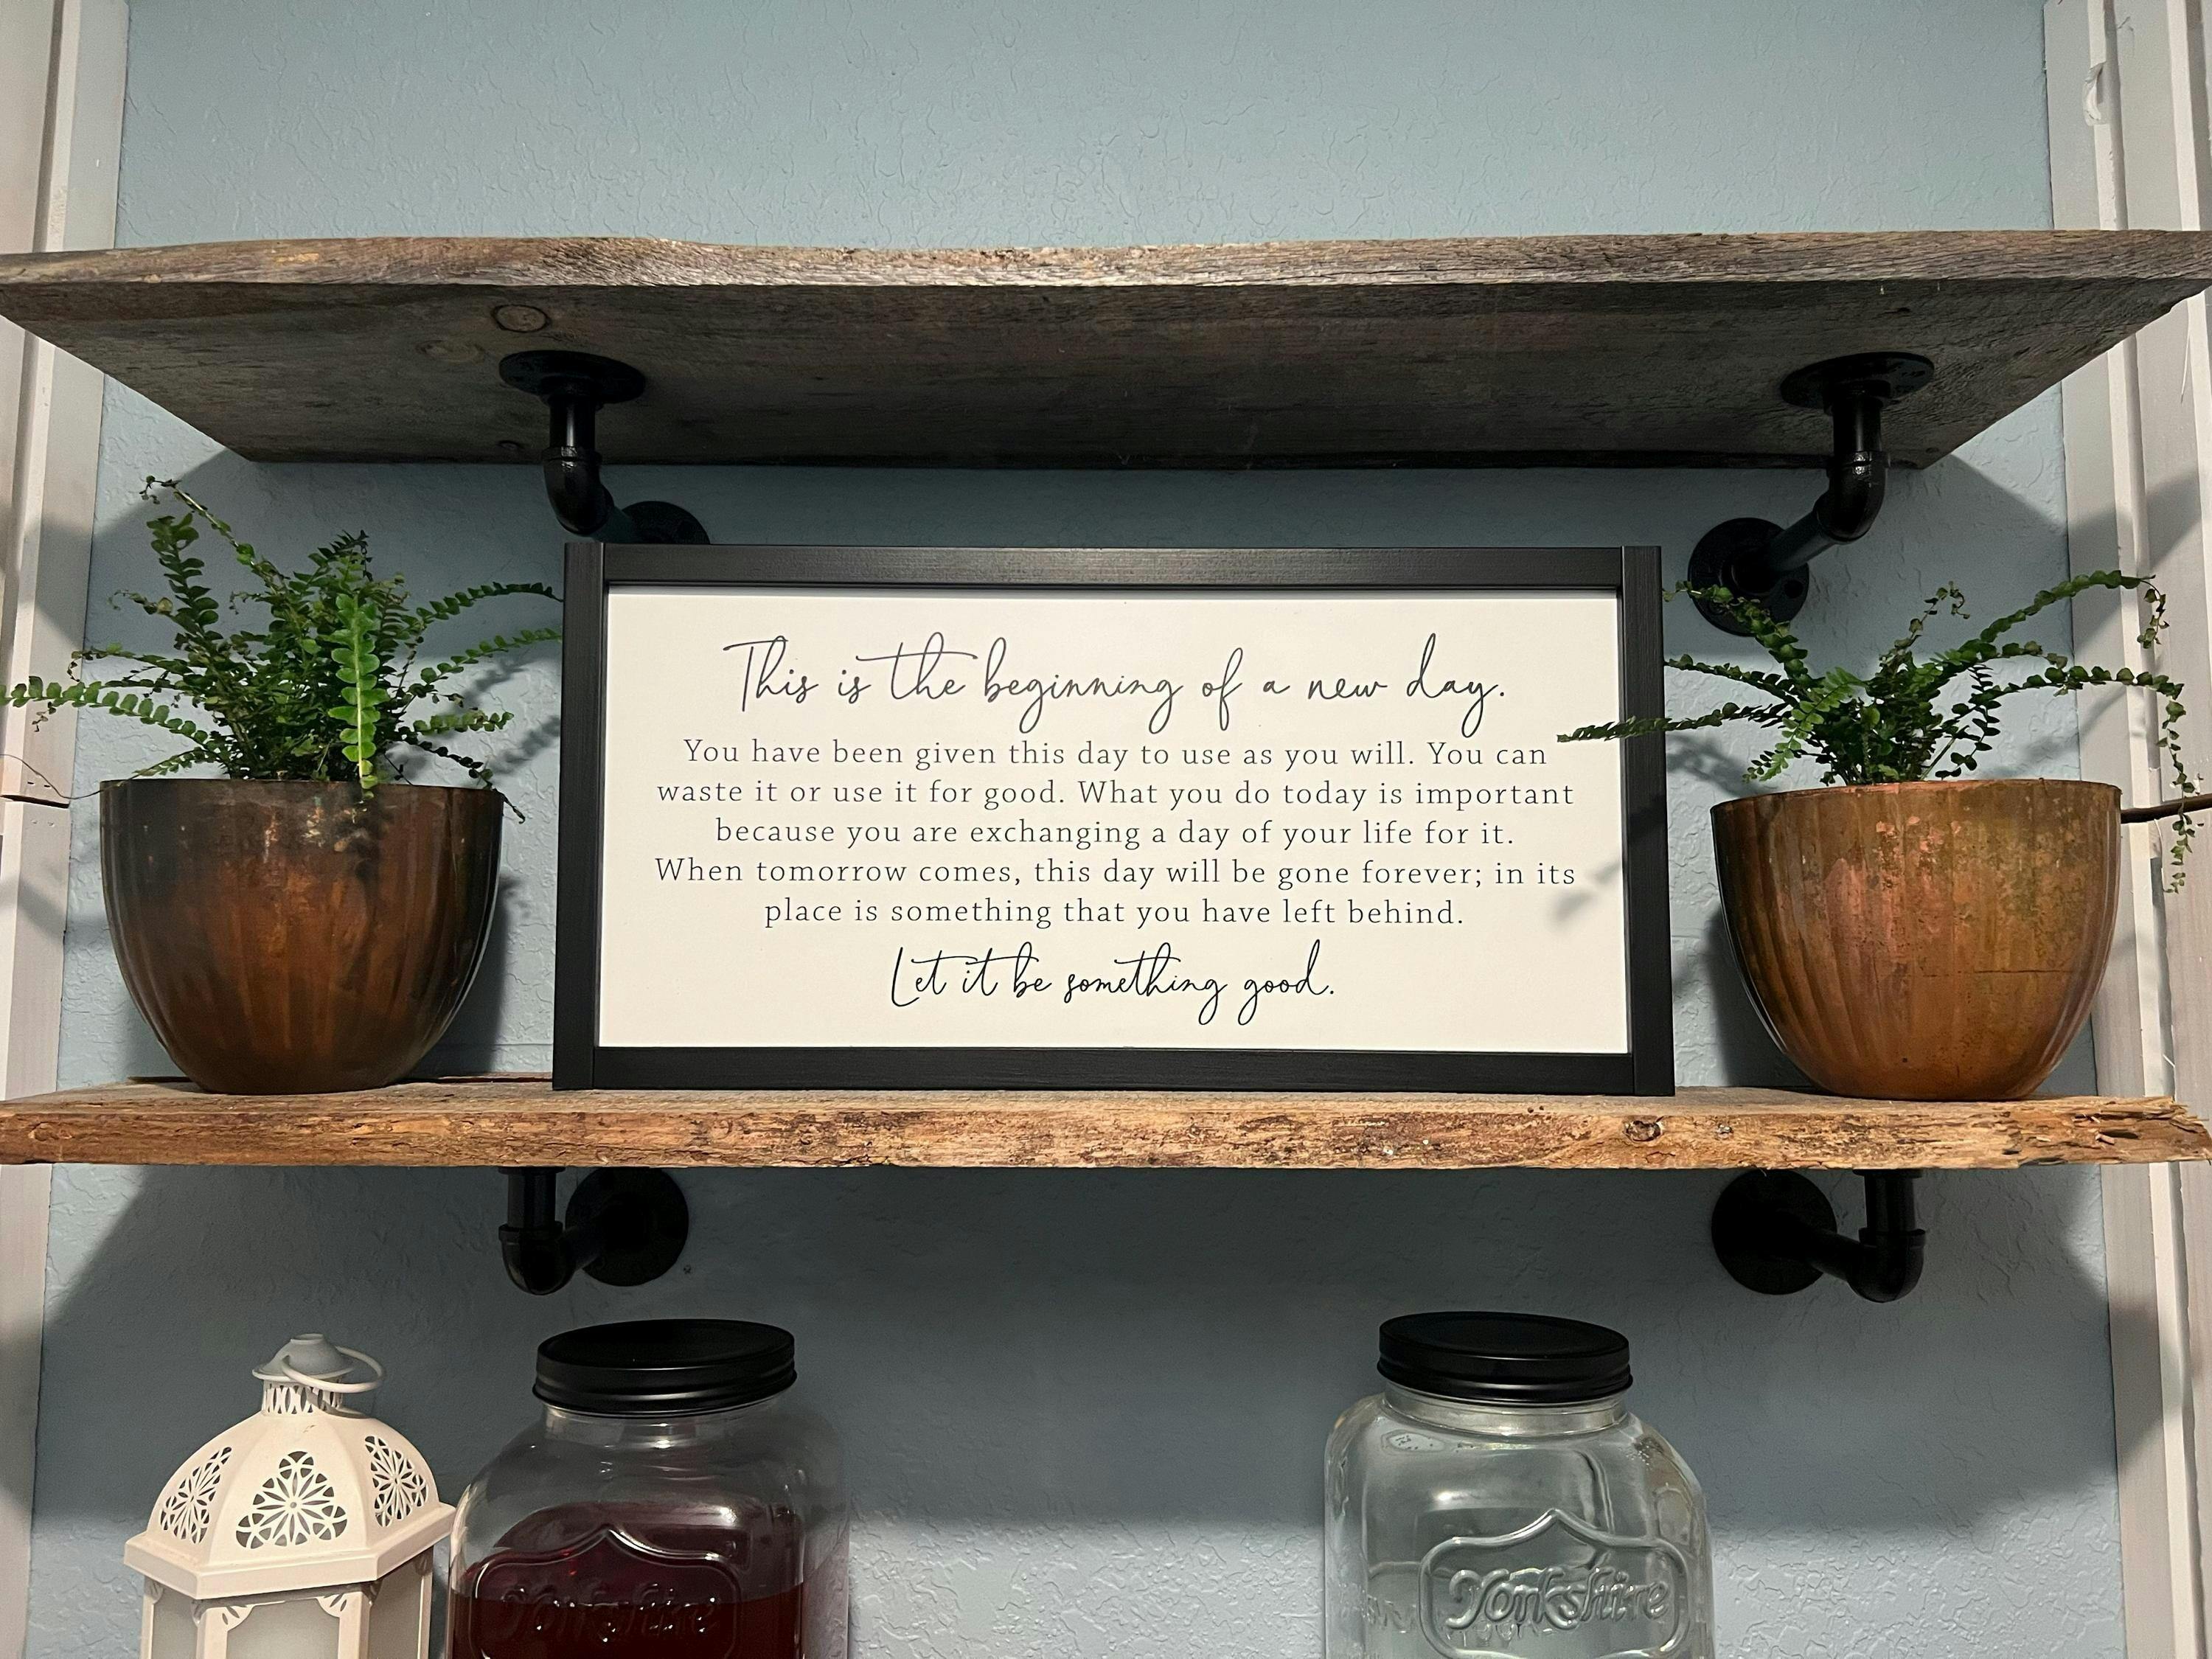 This is the beginning of a new day.
You have been given this day to use as you will. You can
waste it or use it for good. What you do today is important
because you are exchanging a day of your life for it.
When tomorrow comes, this day will be gone forever; in its
place is something that you have left behind.
Let it be something good.
Yorkshire
Yorkshire